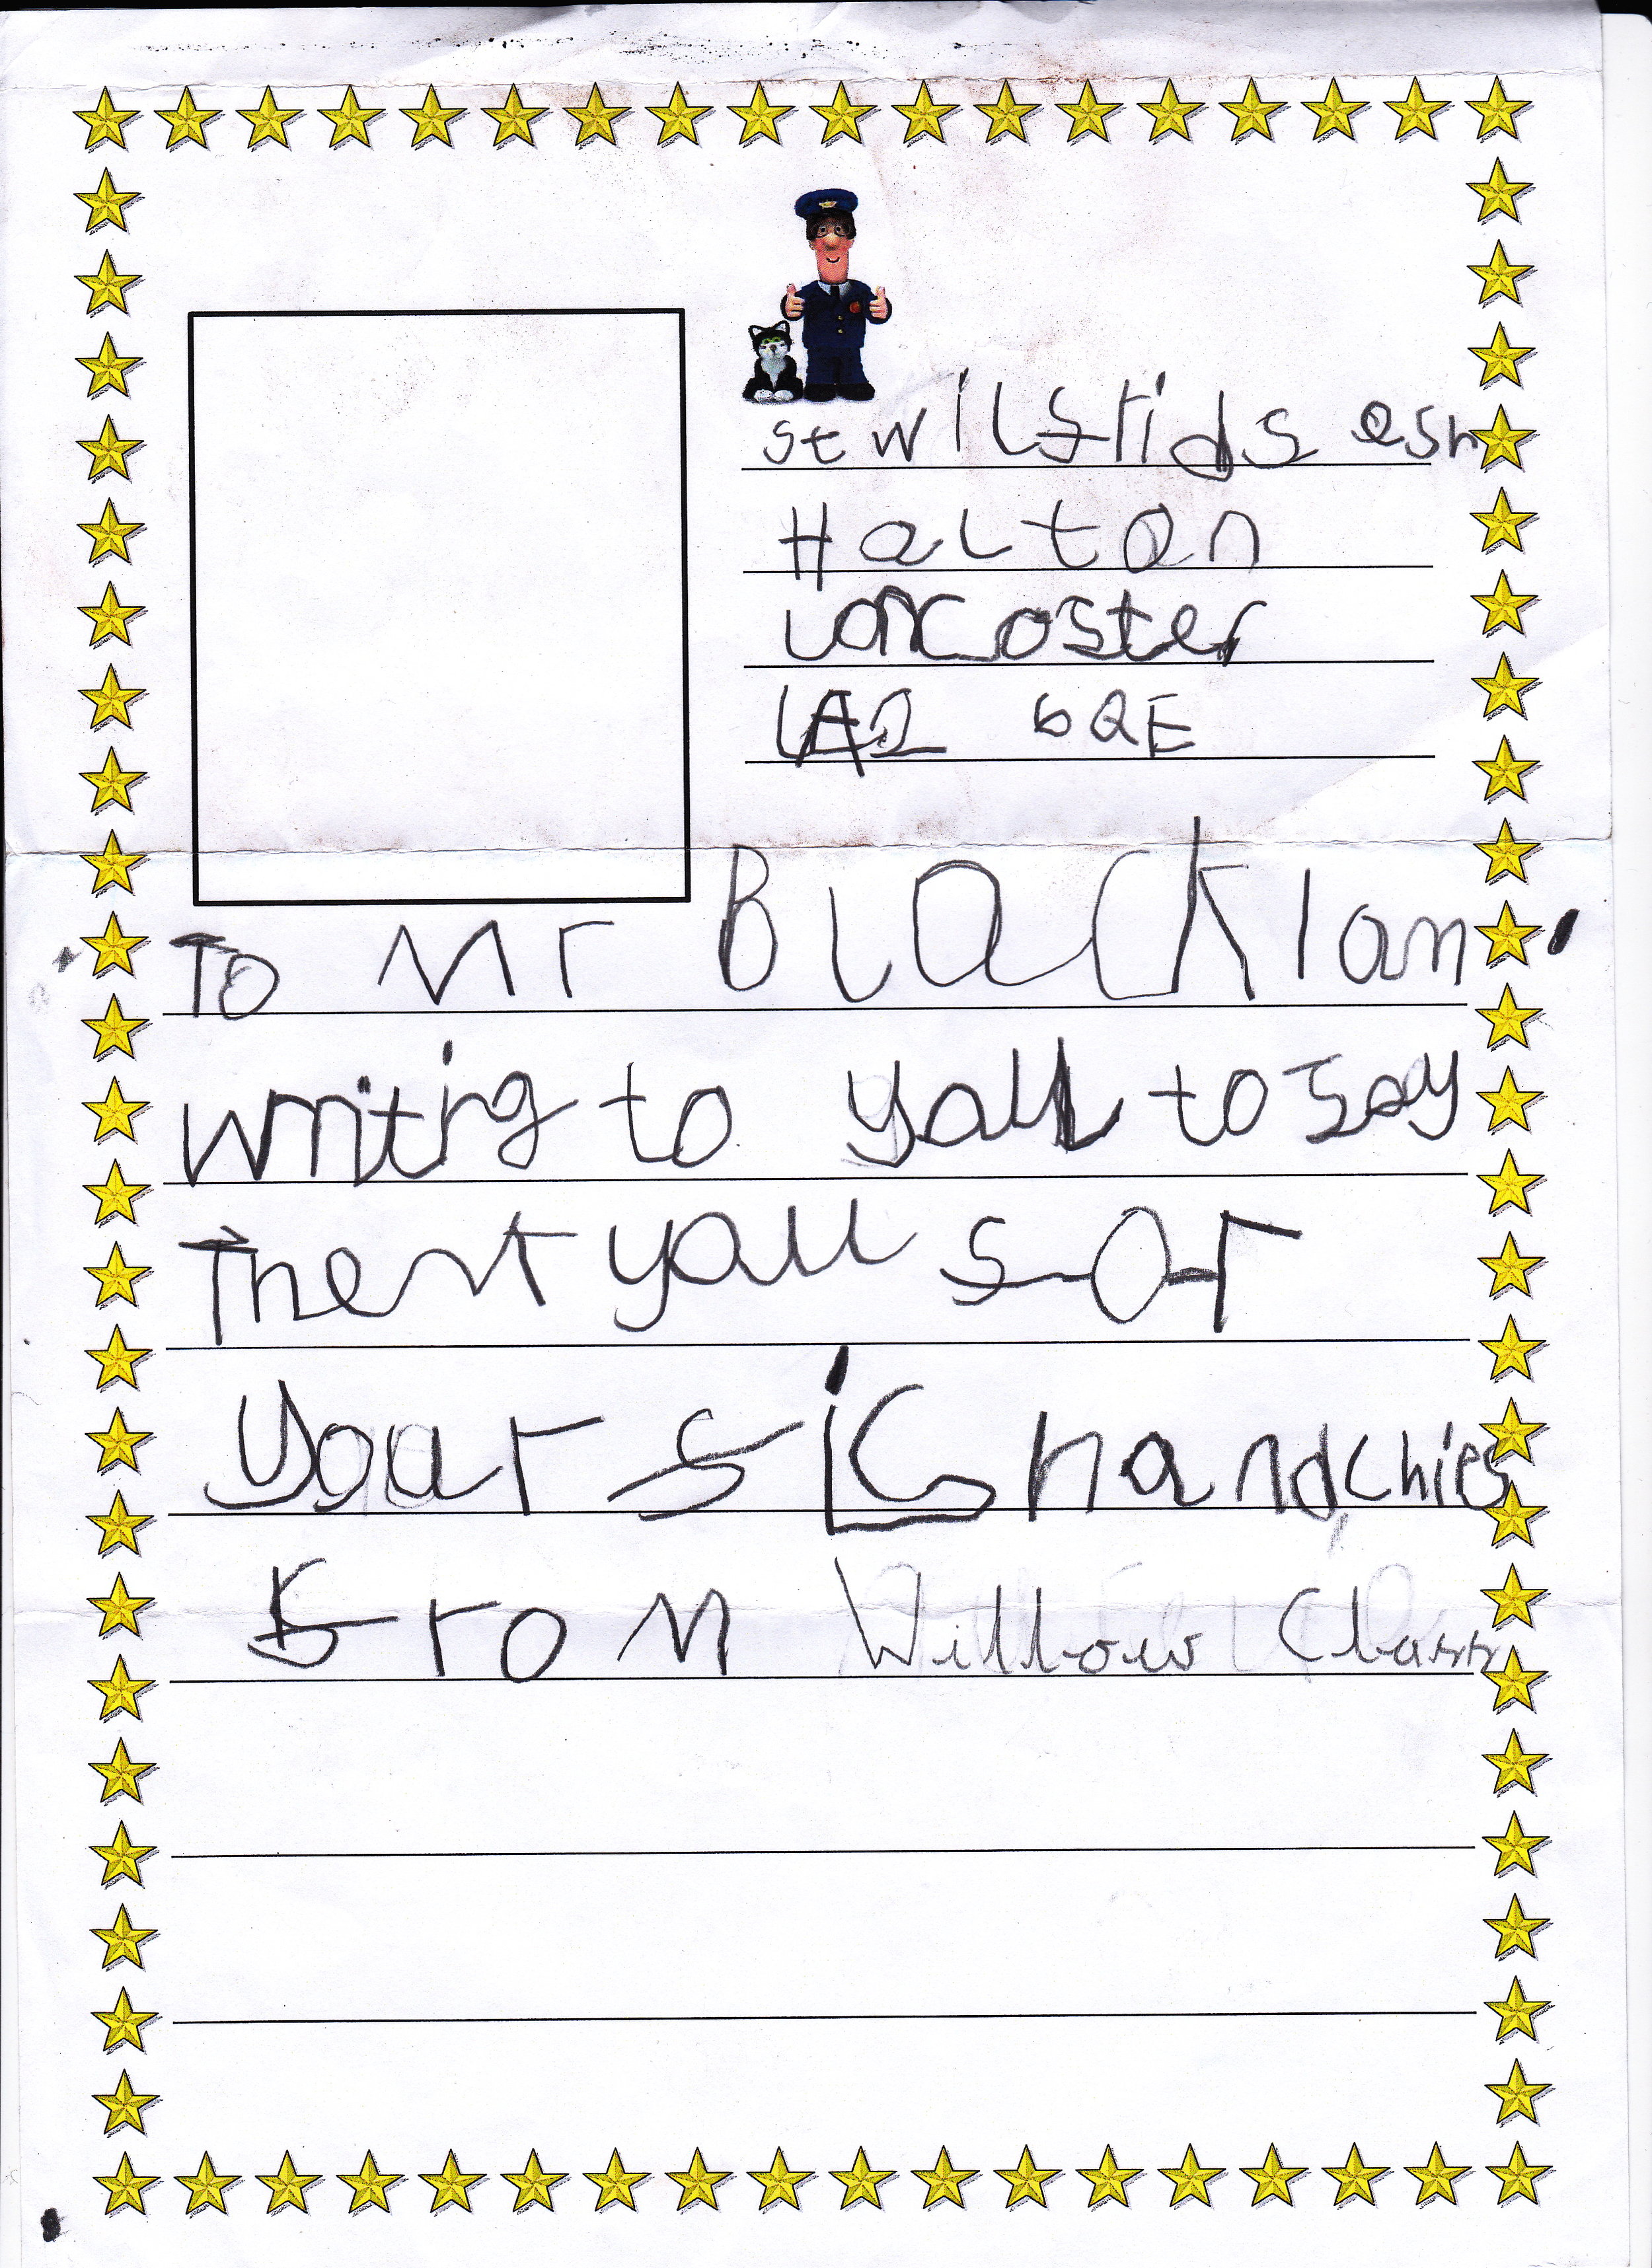 st wilfrids esh
Halton
Lancaster
LA2 6QE
To Mr Black I am
writing to you to say
Thenk you for
your sick handchies
From Willow Class